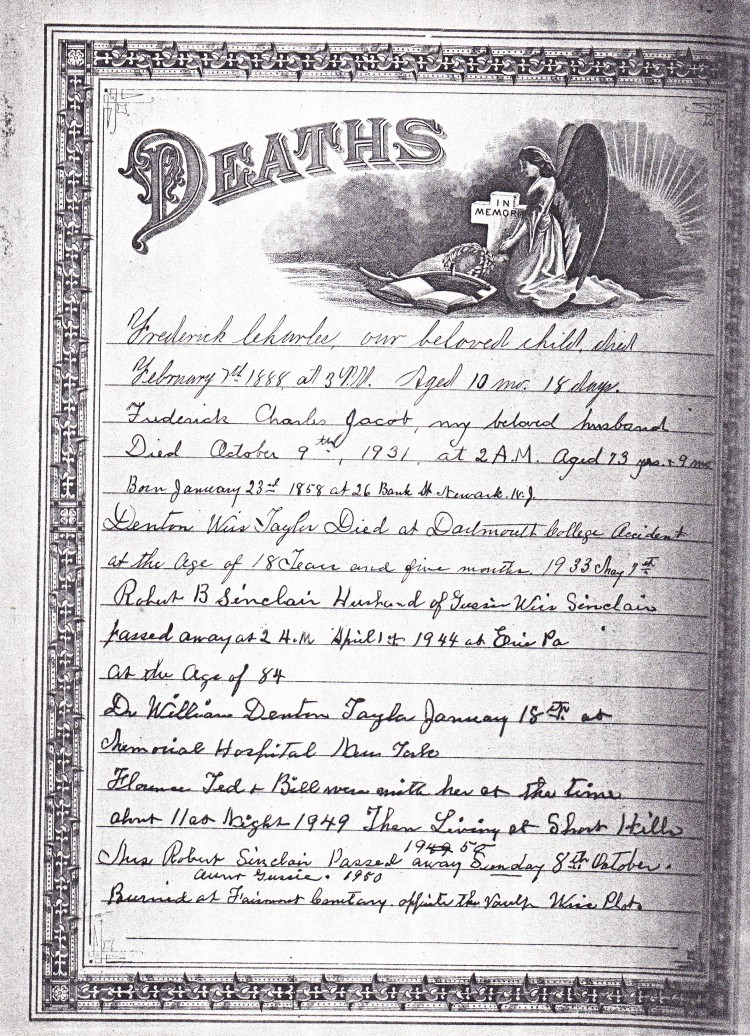 DEATHS
IN
MEMORI
Frederick Charles, our beloved child, died
February 2nd 1888 at 3 P.M. Aged 10 mo. 18 days.
Frederick Charles Jacob, my beloved husband
Died October 9th, 1931, at 2 A.M. Aged 73 yrs. + 9 mo
Born January 23rd 1858 at 26 Bank St Newark. N.J.
Denton Wiss Taylor Died at Dartmouth College Accident
at the Age of 18 Years and five months. 1933 May
Robert B Sinclair Husband of Gussie Wiss Sinclair
passed away at 2 A.M April 1st 1944 at Erie Pa
at the Age of 84
Dr William Denton Taylor January 18th at
Memorial Hospital New York
Florence Ted + Bill were with her at the time
about 11 at Night 1949 Then Living at Short Hills
1949 50
Mrs Robert Sinclair Passed away Sunday 8th October.
Aunt Gussie. 1950
Burried at Fairmont Cemetary. oppisite the Vault Wiss Plot